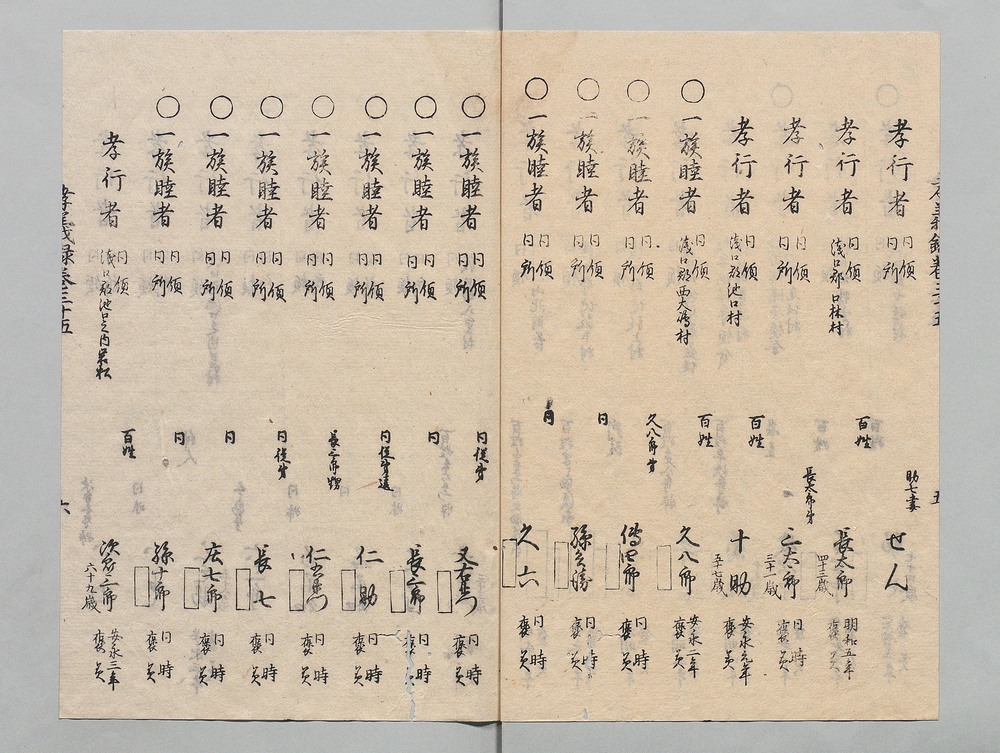 孝行者 同領 同所 助七妻 せん
孝行者 同領 浅口郡口林村 百姓 長太郎 四十三歳 明和五年 褒美
孝行者 同領 同所 長太郎弟 三太郎 三十一歳 同時 褒美
孝行者 同領 浅口郡池口村 百姓 十助 五十七歳 安永元年 褒美
○一族睦者 同領 浅口郡西大嶋村 百姓 久八郎 安永二年 褒美
○一族睦者 同領 同所 久八郎弟 傳四郎 同時 褒美
○一族睦者 同領 同所 同 同時 褒美
○一族睦者 同領 同所 同 久六 同時 褒美
○一族睦者 同領 同所 同従弟 又右衛門 同時 褒美
○一族睦者 同領 同所 同 長三郎 同時 褒美
○一族睦者 同領 同所 同従弟違 仁助 同時 褒美
○一族睦者 同領 同所 長三郎甥 仁右衛門 同時 褒美
○一族睦者 同領 同所 同従弟 長七 同時 褒美
○一族睦者 同領 同所 同 庄七郎 同時 褒美
○一族睦者 同領 同所 同 孫十郎 同時 褒美
孝行者 同領 百姓 六十九歳 安永三年 褒美
孝義録巻三十五
五
六